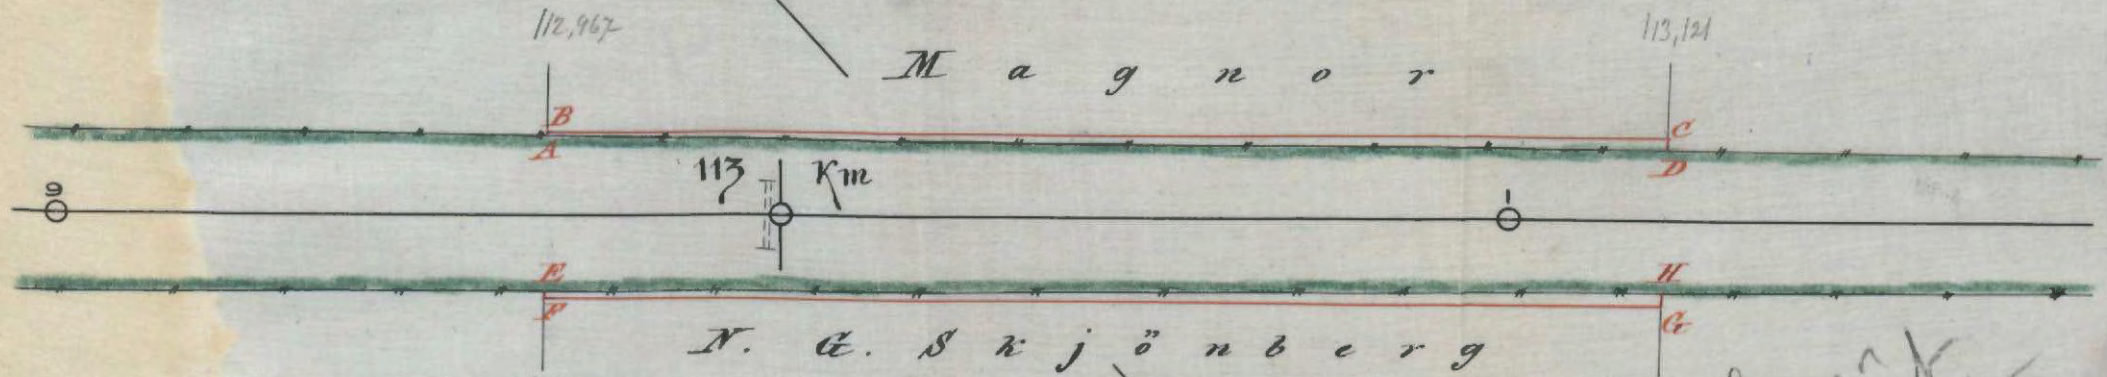 112,967 113,121
Magnor
B C
A D
113 Km
9 1
E H
F G
N. G. Skjönberg